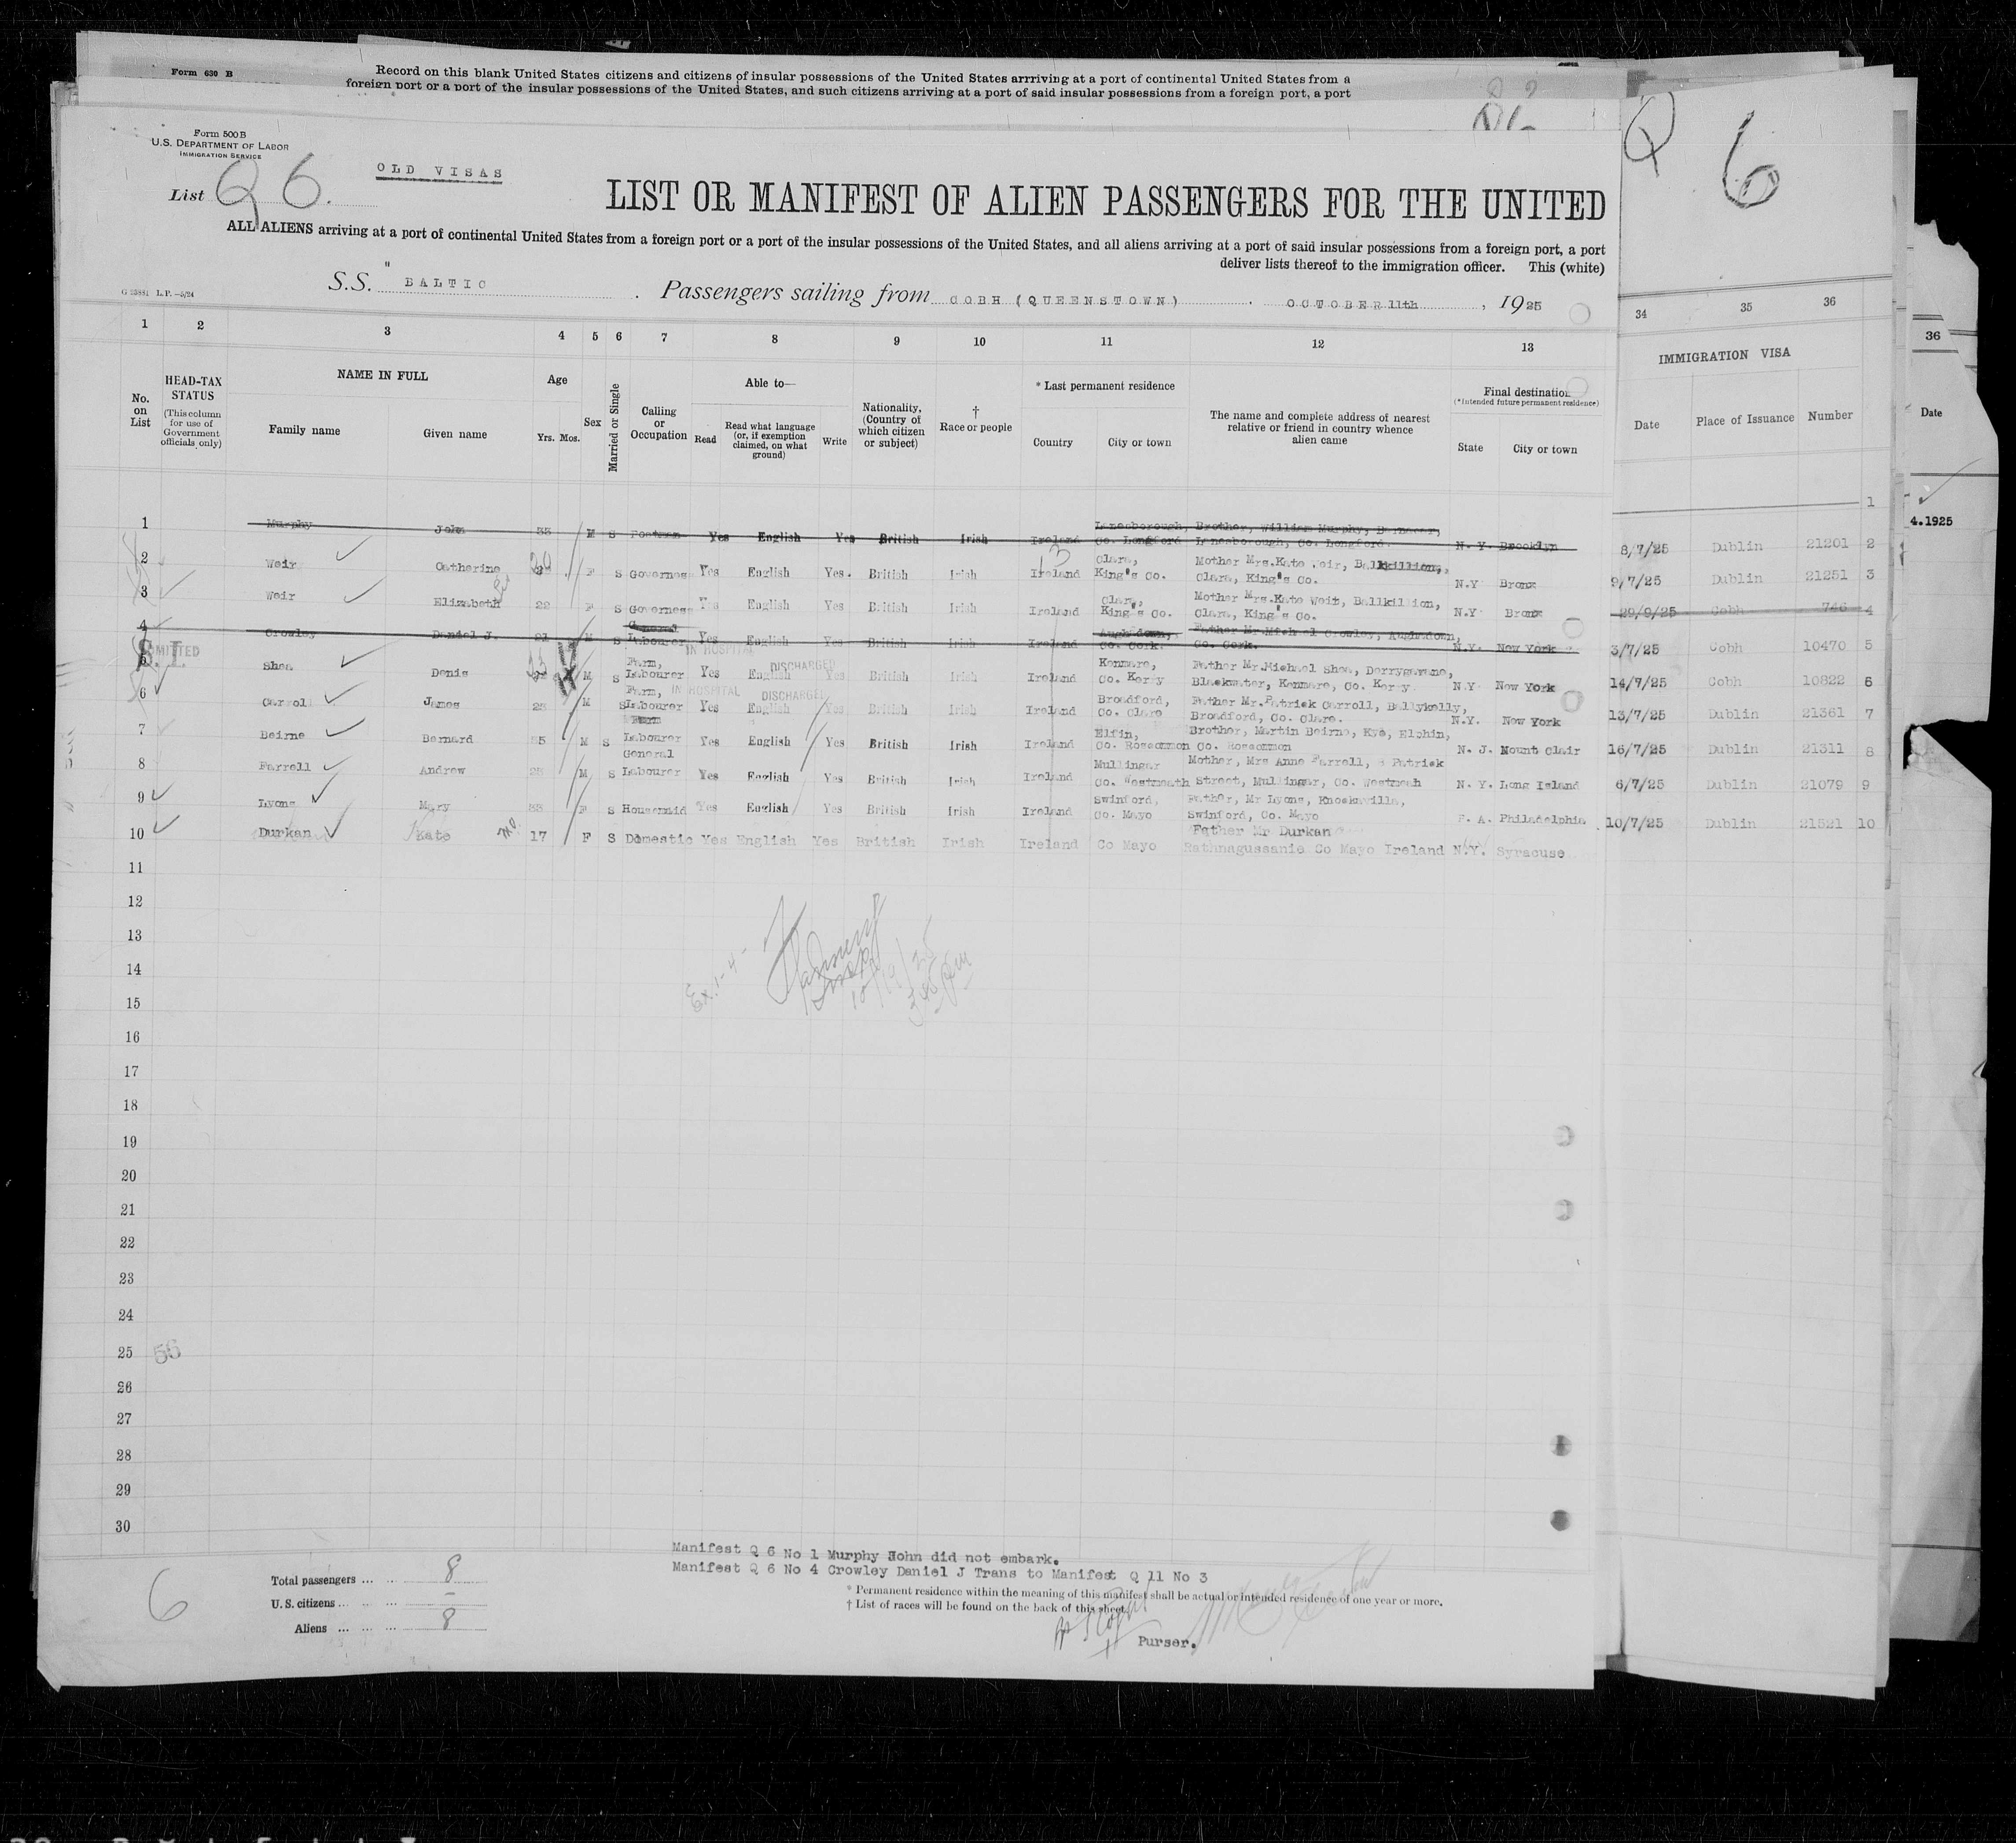 Form 630 B
Record on this blank United States citizens and citizens of insular possessions of the United States arrriving at a port of continental United States from a
foreign port or a port of the insular possessions of the United States, and such citizens arriving at a port of said insular possessions from a foreign port, a port
Form 500 B
U.S. DEPARTMENT OF LABOR
IMMIGRATION SERVICE
OLD VISAS
List Q 6.
LIST OR MANIFEST OF ALIEN PASSENGERS FOR THE UNITED
Q 6
ALL ALIENS arriving at a port of continental United States from a foreign port or a port of the insular possessions of the United States, and all aliens arriving at a port of said insular possessions from a foreign port, a port
deliver lists thereof to the immigration officer. This (white)
S.S. "BALTIC . Passengers sailing from COBH (QUEENSTOWN) . OCTOBER 11th , 1925
1 2 3 4 5 6 7 8 9 10 11 12 13 34 35 36
36
No. on List
HEAD-TAX STATUS
(This column for use of Government officials only)
NAME IN FULL
Family name Given name
Age
Yrs. Mos.
Sex
Married or Single
Calling or Occupation
Able to—
Read Read what language (or, if exemption claimed, on what ground) Write
Nationality, (Country of which citizen or subject)
† Race or people
* Last permanent residence
Country City or town
The name and complete address of nearest relative or friend in country whence alien came
Final destination
(*Intended future permanent residence)
State City or town
IMMIGRATION VISA
Date Place of Issuance Number
Date
4.1925
1 Murphy John 33 M S Postman Yes English Yes British Irish Ireland Lanesborough, Co. Longford Brother, William Murphy, Lanesborough, Co. Longford. N. Y. Brooklyn 1
2 Weir Catherine 24 F S Governess Yes English Yes. British Irish Ireland Clara, King's Co. Mother Mrs.Kate Weir, Ballkillion, Clara, King's Co. N.Y Bronx 8/7/25 Dublin 21201 2
3 Weir Elizabeth 22 F S Governess Yes English Yes British Irish Ireland Clara, King's Co. Mother Mrs.Kate Weir, Ballkillion, Clara, King's Co. N.Y Bronx 9/7/25 Dublin 21251 3
4 Crowley Daniel J. 21 M S General Labourer Yes English Yes British Irish Ireland Aughadown, Co. Cork. Father Mr.Michael Crowley, Aughadown, Co. Cork. N.Y. New York 29/9/25 Cobh 746 4
ADMITTED
S.I.
IN HOSPITAL DISCHARGED
5 Shea Denis M S Farm, Labourer Yes English Yes British Irish Ireland Kenmare, Co. Kerry Father Mr.Michael Shea, Derrygarane, Blackwater, Kenmare, Co. Kerry. N.Y New York 3/7/25 Cobh 10470 5
IN HOSPITAL DISCHARGED
6 Carroll James 23 M S Farm, Labourer Yes English Yes British Irish Ireland Broadford, Co. Clare Father Mr.Patrick Carroll, Ballykelly, Broadford, Co. Clare. N.Y. New York 14/7/25 Cobh 10822 6
7 Beirne Bernard 35 M S Farm Labourer Yes English Yes British Irish Ireland Elfin, Co. Roscommon Brother, Martin Beirne, Kye, Elphin, Co. Roscommon N. J. Mount Clair 13/7/25 Dublin 21361 7
8 Farrell Andrew 25 M S General Labourer Yes English Yes British Irish Ireland Mullingar Co. Westmeath Mother, Mrs Anne Farrell, Patrick Street, Mullingar, Co. Westmeah N. Y. Long Island 16/7/25 Dublin 21311 8
9 Lyons Mary 33 F S Housemaid Yes English Yes British Irish Ireland Swinford, Co. Mayo Father, Mr Lyons, Knockavilla, Swinford, Co. Mayo P. A. Philadelphia 6/7/25 Dublin 21079 9
10 Durkan Kate 17 F S Domestic Yes English Yes British Irish Ireland Co Mayo Father Mr Durkan Rathnagussanie Co Mayo Ireland N.Y. Syracuse 10/7/25 Dublin 21521 10
11
12
13
14
15
16
17
18
19
20
21
22
23
24
25 56
26
27
28
29
30
Manifest Q 6 No 1 Murphy John did not embark.
Manifest Q 6 No 4 Crowley Daniel J Trans to Manifest Q 11 No 3
6
Total passengers ... 8
U. S. citizens ...
Aliens ... 8
* Permanent residence within the meaning of this manifest shall be actual or intended residence of one year or more.
† List of races will be found on the back of this sheet.
Purser.